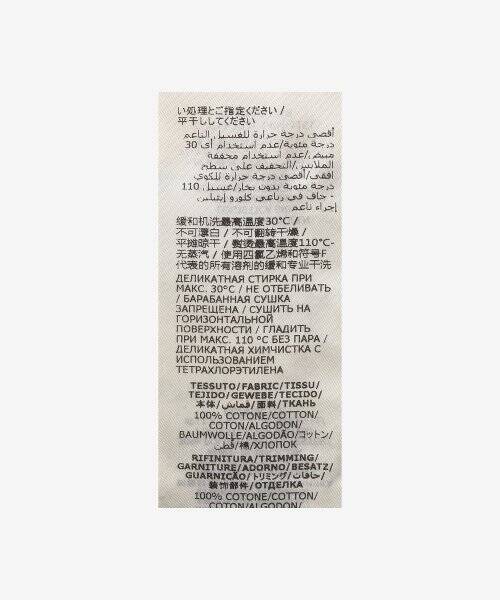 い処理とご指定ください /
平干ししてください
أقصى درجة حرارة للغسيل الناعم
30 درجة مئوية/عدم استخدام أي
مبيض/عدم استخدام مجففة
الملابس/التجفيف على سطح
أفقي/أقصى درجة حرارة للكوي
110 درجة مئوية بدون بخار/غسيل
جاف في رباعي كلورو إيثيلين -
إجراء ناعم
缓和机洗最高温度30°C /
不可漂白 / 不可翻转干燥 /
平摊晾干 / 熨烫最高温度110°C-
无蒸汽 / 使用四氯乙烯和符号F
代表的所有溶剂的缓和专业干洗
ДЕЛИКАТНАЯ СТИРКА ПРИ
МАКС. 30°C / НЕ ОТБЕЛИВАТЬ
/ БАРАБАННАЯ СУШКА
ЗАПРЕЩЕНА / СУШИТЬ НА
ГОРИЗОНТАЛЬНОЙ
ПОВЕРХНОСТИ / ГЛАДИТЬ
ПРИ МАКС. 110 °C БЕЗ ПАРА /
ДЕЛИКАТНАЯ ХИМЧИСТКА С
ИСПОЛЬЗОВАНИЕМ
ТЕТРАХЛОРЭТИЛЕНА
TESSUTO/FABRIC/TISSU/
TEJIDO/GEWEBE/TECIDO/
本体/قماش/面料/ТКАНЬ
100% COTONE/COTTON/
COTON/ALGODON/
BAUMWOLLE/ALGODÃO/コットン/
قطن/棉/ХЛОПОК
RIFINITURA/TRIMMING/
GARNITURE/ADORNO/BESATZ/
GUARNIÇÃO/トリミング/حافات/
装饰部件/ОТДЕЛКА
100% COTONE/COTTON/
COTON/ALGODON/